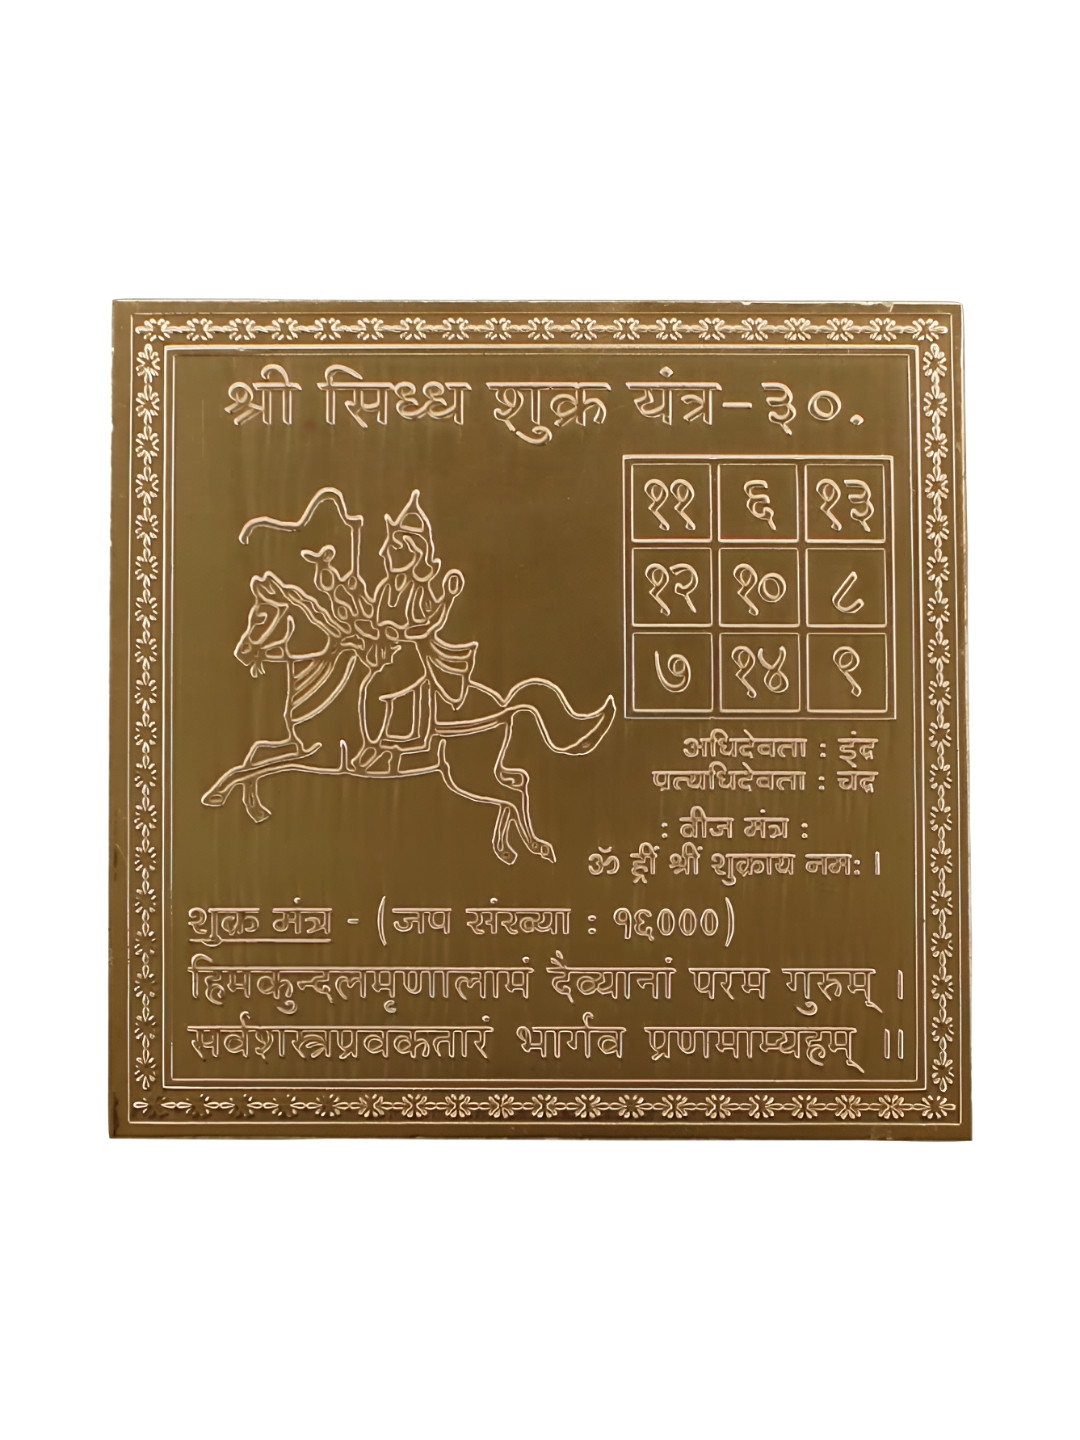 श्री सिध्ध शुक्र यंत्र-३०.
११ ६ १३
१२ १० ८
७ १४ ९
अधिदेवता : इंद्र
प्रत्यधिदेवता : चद्र
: वीज मंत्र :
ॐ ह्रीं श्रीं शुक्राय नमः ।
शुक्र मंत्र - (जप संख्या : १६०००)
हिमकुन्दलमृणालामं दैव्यानां परम गुरुम् ।
सर्वशस्त्रप्रवकतारं भार्गव प्रणमाम्यहम् ॥